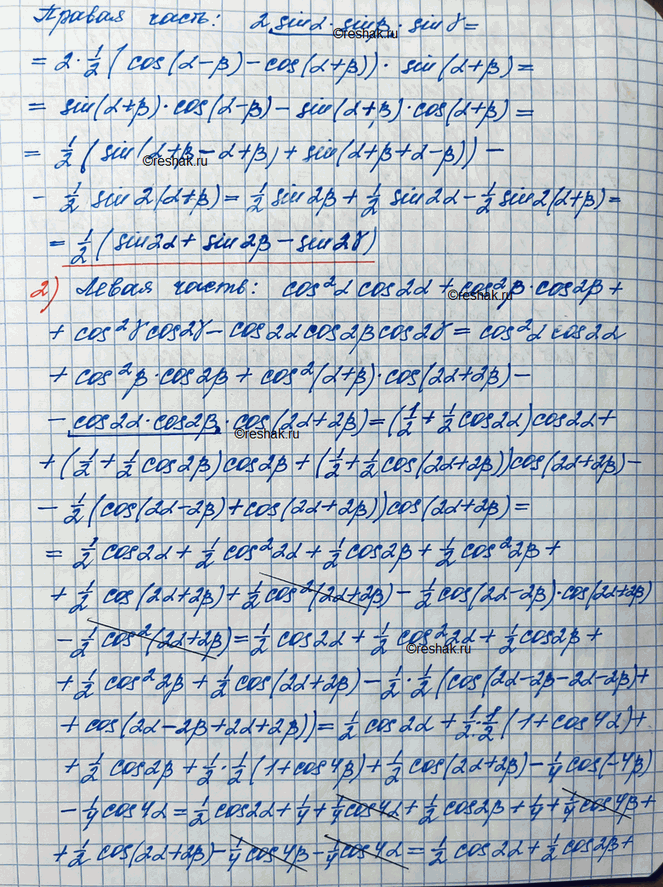 Правая часть: 2 sinα · sinβ · sinγ =
= 2 · 1/2 (cos(α−β) − cos(α+β)) · sin(α+β) =
= sin(α+β) · cos(α−β) − sin(α+β) · cos(α+β) =
= 1/2 (sin(α+β−α+β) + sin(α+β+α−β)) −
− 1/2 sin 2(α+β) = 1/2 sin2β + 1/2 sin2α − 1/2 sin2(α+β) =
= 1/2 (sin2α + sin2β − sin2γ)
2) Левая часть: cos²α cos2α + cos²β · cos2β +
+ cos²γ cos2γ − cos2α cos2β cos2γ = cos²α cos2α
+ cos²β · cos2β + cos²(α+β) · cos(2α+2β) −
− cos2α · cos2β · cos(2α+2β) = (1/2 + 1/2 cos2α) cos2α +
+ (1/2 + 1/2 cos2β) cos2β + (1/2 + 1/2 cos(2α+2β)) cos(2α+2β) −
− 1/2 (cos(2α−2β) + cos(2α+2β)) cos(2α+2β) =
= 1/2 cos2α + 1/2 cos²2α + 1/2 cos2β + 1/2 cos²2β +
+ 1/2 cos(2α+2β) + 1/2 cos²(2α+2β) − 1/2 cos(2α−2β) · cos(2α+2β)
− 1/2 cos²(2α+2β) = 1/2 cos2α + 1/2 cos²2α + 1/2 cos2β +
+ 1/2 cos²2β + 1/2 cos(2α+2β) − 1/2 · 1/2 (cos(2α−2β−2α−2β) +
+ cos(2α−2β+2α+2β)) = 1/2 cos2α + 1/2 · 1/2 (1 + cos4α) +
+ 1/2 cos2β + 1/2 · 1/2 (1 + cos4β) + 1/2 cos(2α+2β) − 1/4 cos(−4β)
− 1/4 cos4α = 1/2 cos2α + 1/4 + 1/4 cos4α + 1/2 cos2β + 1/4 + 1/4 cos4β +
+ 1/2 cos(2α+2β) − 1/4 cos4β − 1/4 cos4α = 1/2 cos2α + 1/2 cos2β +
©reshak.ru
©reshak.ru
©reshak.ru
©reshak.ru
©reshak.ru